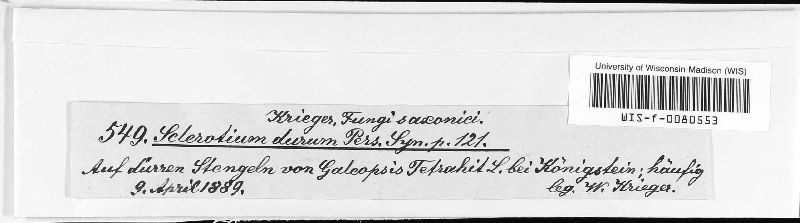 University of Wisconsin-Madison (WIS)
WIS-f-0080553
Krieger, Fungi saxonici.
549. Sclerotium durum Pers. Syn. p. 121.
Auf dürren Stengeln von Galeopsis Tetrahit L. bei Königstein; häufig
9. April 1889. leg. W. Krieger.